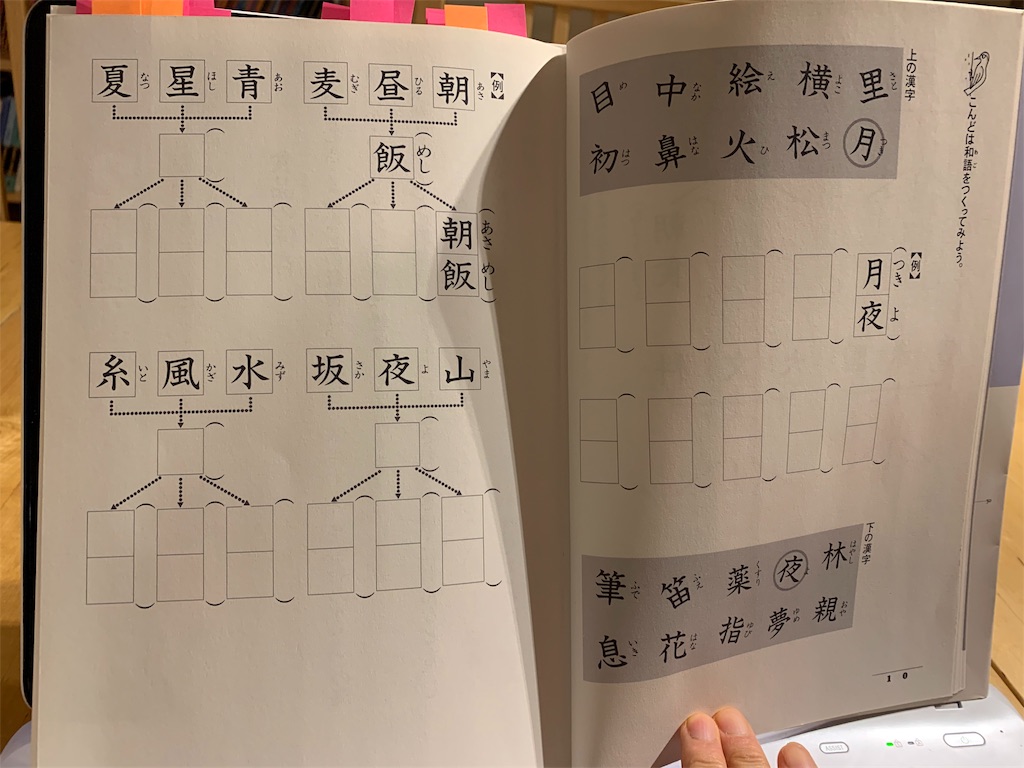 こんどは和語をつくってみよう。
わご
上の漢字
里 さと
横 よこ
絵 え
中 なか
目 め
月 つき
松 まつ
火 ひ
鼻 はな
初 はつ
【例】
月夜
つき よ
下の漢字
林 はやし
夜 よ
薬 くすり
笛 ふえ
筆 ふで
親 おや
夢 ゆめ
指 ゆび
花 はな
息 いき
10
【例】
朝 あさ
昼 ひる
麦 むぎ
飯 めし
朝飯
あさ めし
青 あお
星 ほし
夏 なつ
山 やま
夜 よ
坂 さか
水 みず
風 かざ
糸 いと
ASSIST